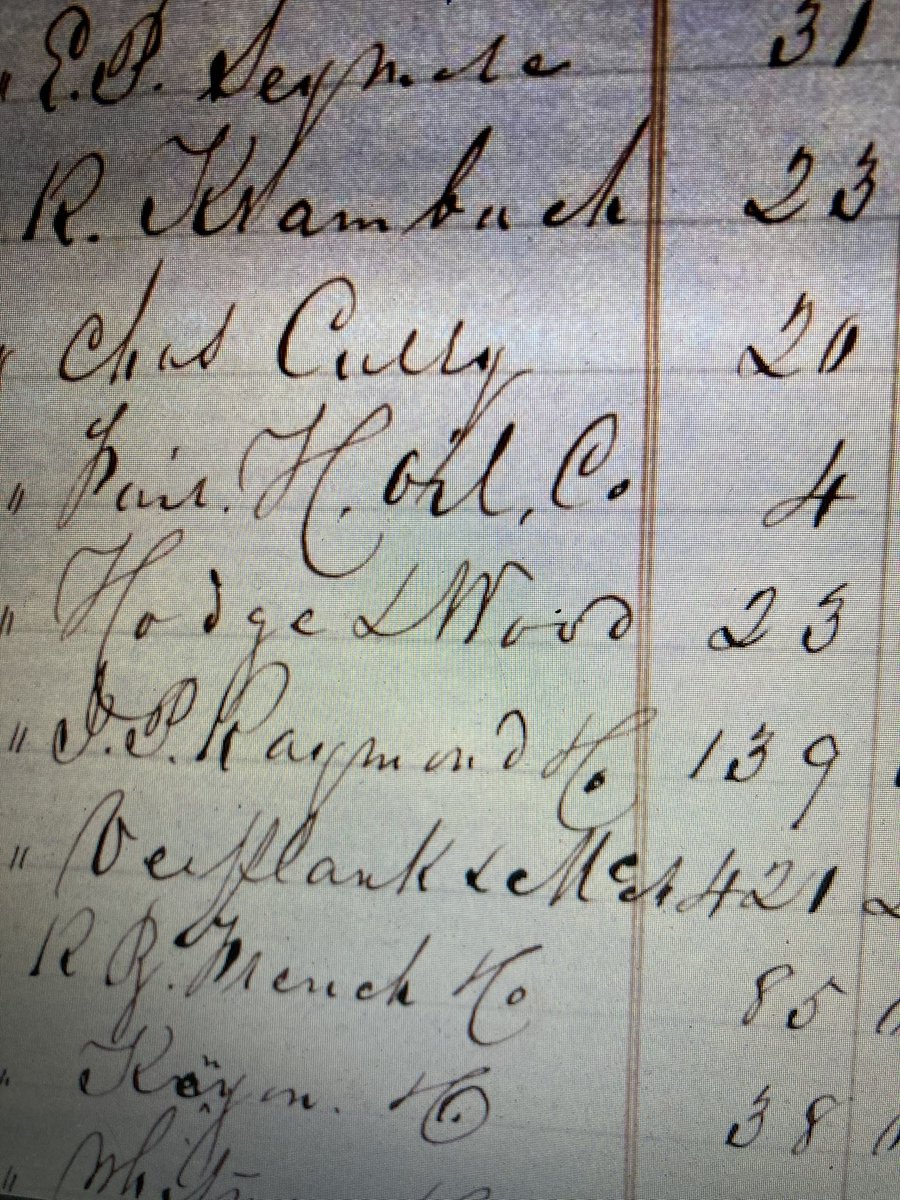 " E.P. Seymore 31
R. Krambach 23
" Chas Cully 20
" Fair. H. Oil. Co. 4
" Hodge & Wood 23
" J.P. Raymond & Co 139
" Verplank & 421
R G. French & Co 85
" & Co. 38
"